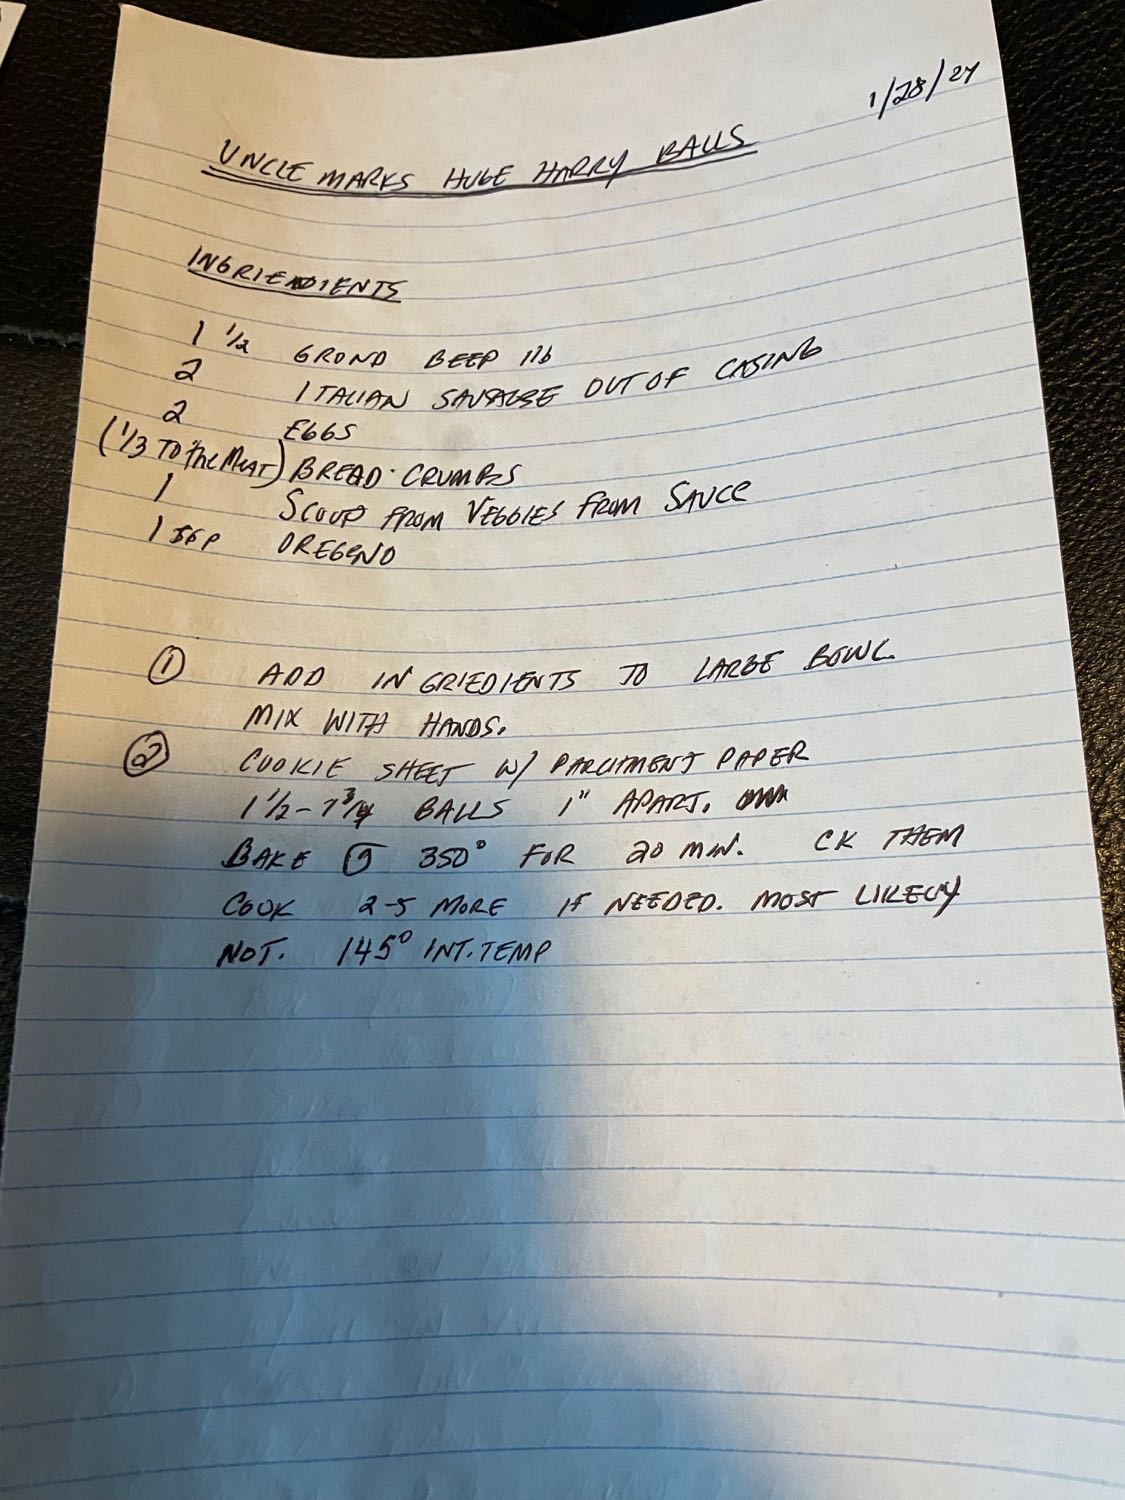 1/28/24
UNCLE MARKS HUGE HARRY BALLS
INGRIEDIENTS
1 1/2 GROND BEEP 1lb
2 ITALIAN SAUSAGE OUT OF CASING
2 EGGS
(1/3 TO the MEAT) BREAD CRUMBS
1 SCOUP FROM VEGGIES FROM SAUCE
1 tsp OREGENO
① ADD INGRIEDIENTS TO LARGE BOWL.
MIX WITH HANDS.
② COOKIE SHEET W/ PARCHMENT PAPER
1 1/2 - 1 3/4 BALLS 1" APART.
BAKE @ 350° FOR 20 MIN. CK THEM
COOK 2-5 MORE IF NEEDED. MOST LIKELY
NOT. 145° INT. TEMP